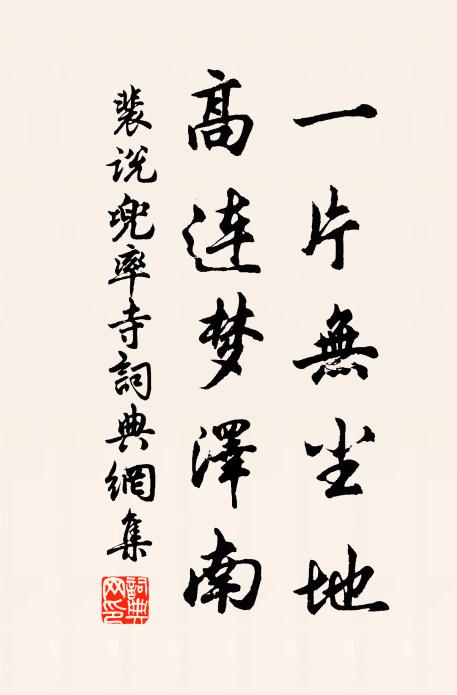 一片無尘地
高连梦澤南
裴说兜率寺詞典網集
詞典网印